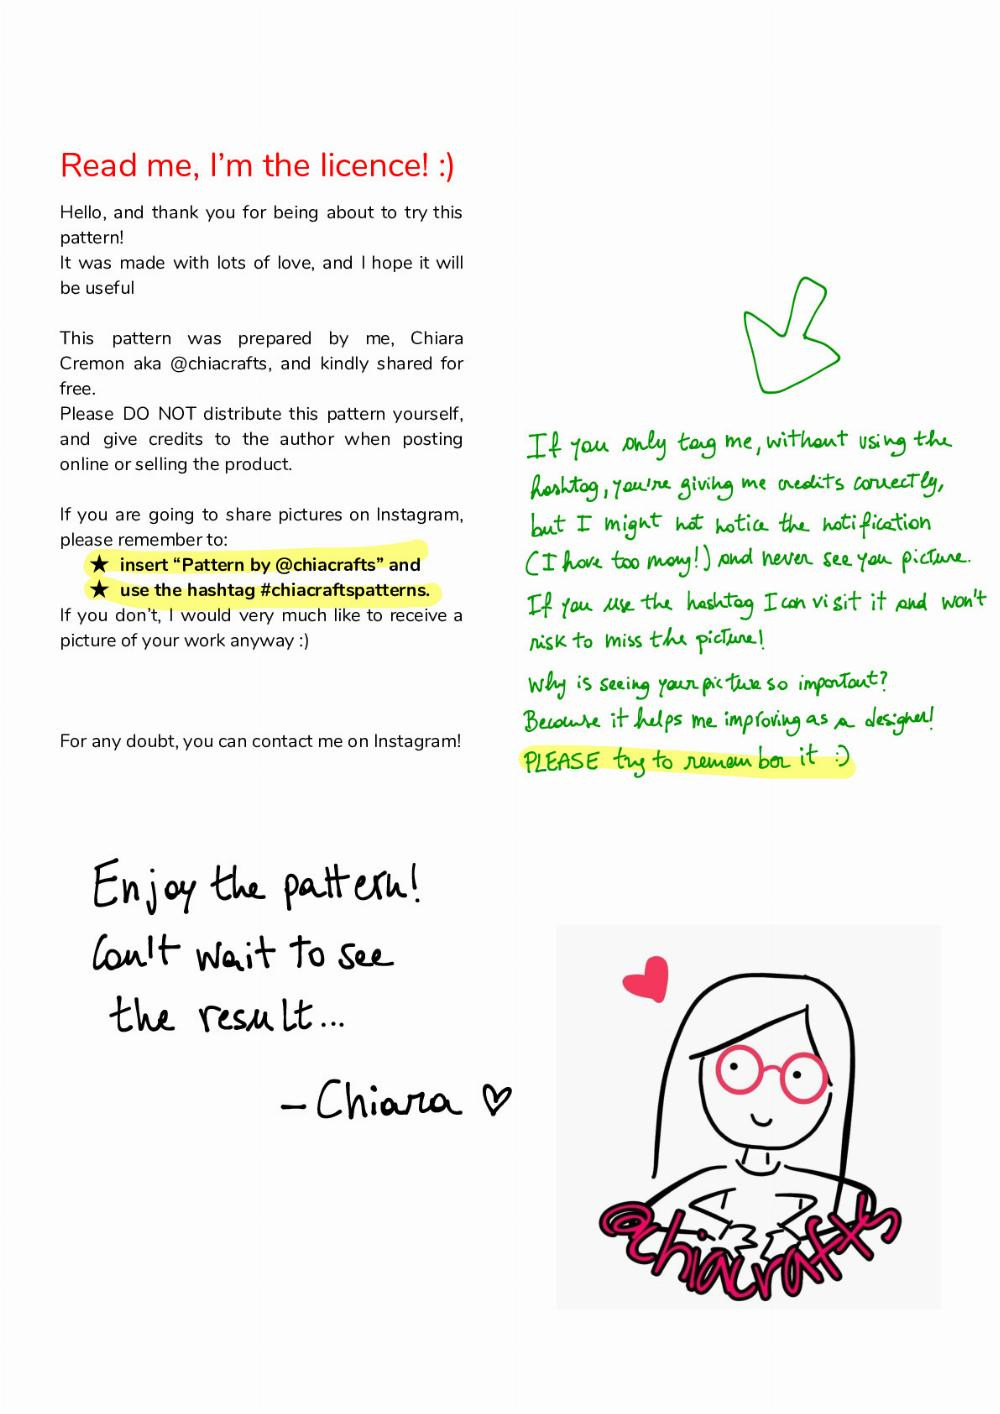 Read me, I’m the licence! :)
Hello, and thank you for being about to try this
pattern!
It was made with lots of love, and I hope it will
be useful
This pattern was prepared by me, Chiara
Cremon aka @chiacrafts, and kindly shared for
free.
Please DO NOT distribute this pattern yourself,
and give credits to the author when posting
online or selling the product.
If you are going to share pictures on Instagram,
please remember to:
★ insert “Pattern by @chiacrafts” and
★ use the hashtag #chiacraftspatterns.
If you don’t, I would very much like to receive a
picture of your work anyway :)
For any doubt, you can contact me on Instagram!
If you only tag me, without using the
hashtag, you're giving me credits correctly,
but I might not notice the notification
(I have too many!) and never see you picture.
If you use the hashtag I can visit it and won't
risk to miss the picture!
Why is seeing your picture so important?
Because it helps me improving as a designer!
PLEASE try to remember it :)
Enjoy the pattern!
Can't wait to see
the result...
– Chiara ♡
@chiacrafts